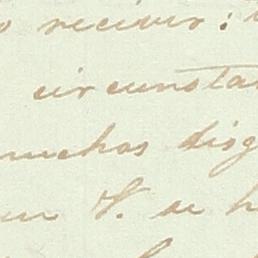 recivir:
circunsta
muchas disg
V. se h